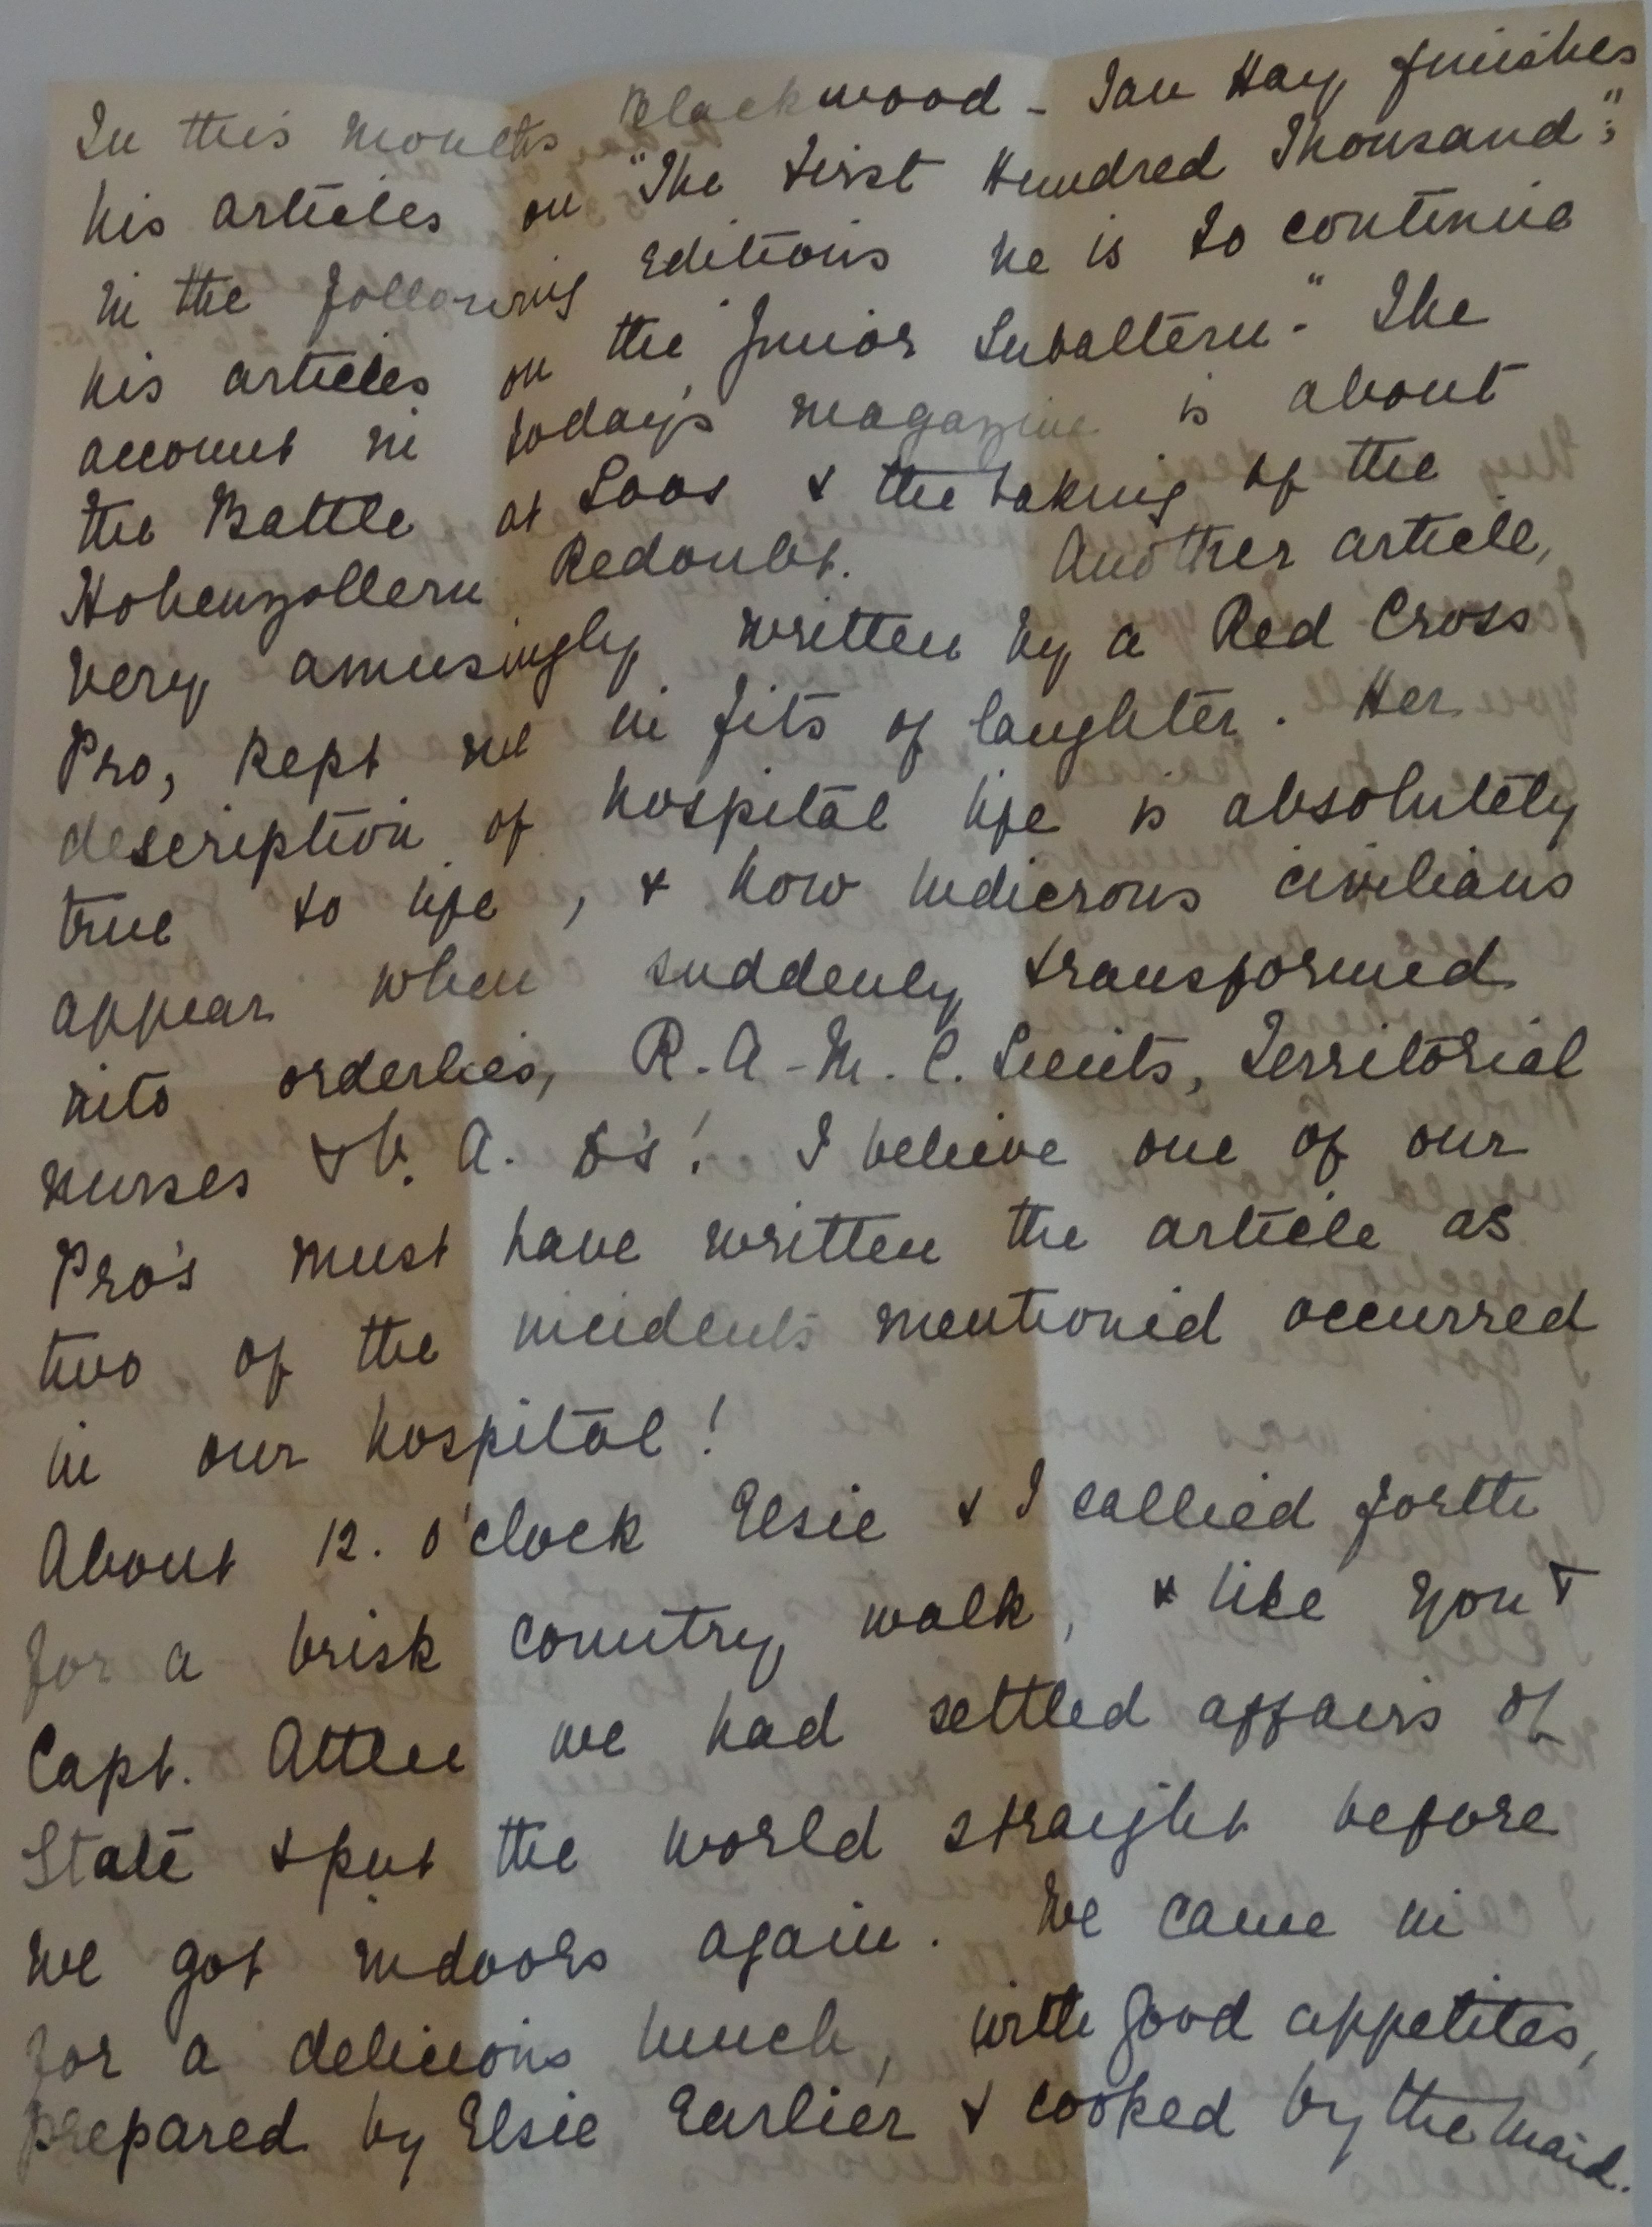 In this months Blackwood - Ian Hay finishes
his articles on "The First Hundred Thousand";
in the following editions he is to continue
his articles on "the Junior Subaltern." The
account in today's magazine is about
the Battle at Loos & the taking of the
Hohenzollern Redoubt. Another article,
very amusingly written by a Red Cross
Pro, kept me in fits of laughter. Her
description of hospital life is absolutely
true to life, & how ludicrous civilians
appear when suddenly transformed
into orderlies, R.A-M.C. Lieuts, Territorial
nurses & V.A.D's! I believe one of our
Pro's must have written the article as
two of the incidents mentioned occurred
in our hospital!
About 12. o'clock Elsie & I sallied forth
for a brisk country walk, & like you &
Capt. Attlee we had settled affairs of
State & put the world straight before
we got indoors again. We came in
for a delicious lunch, with good appetites,
prepared by Elsie Earlier & cooked by the maid.